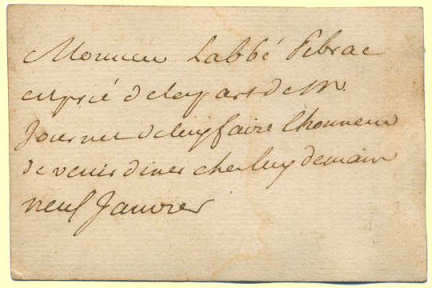 Monsieur Labbé Pebrac
est prié de la part de M.
Journet de luy faire lhonneur
de venir diner chez luy demain
neuf Janvier